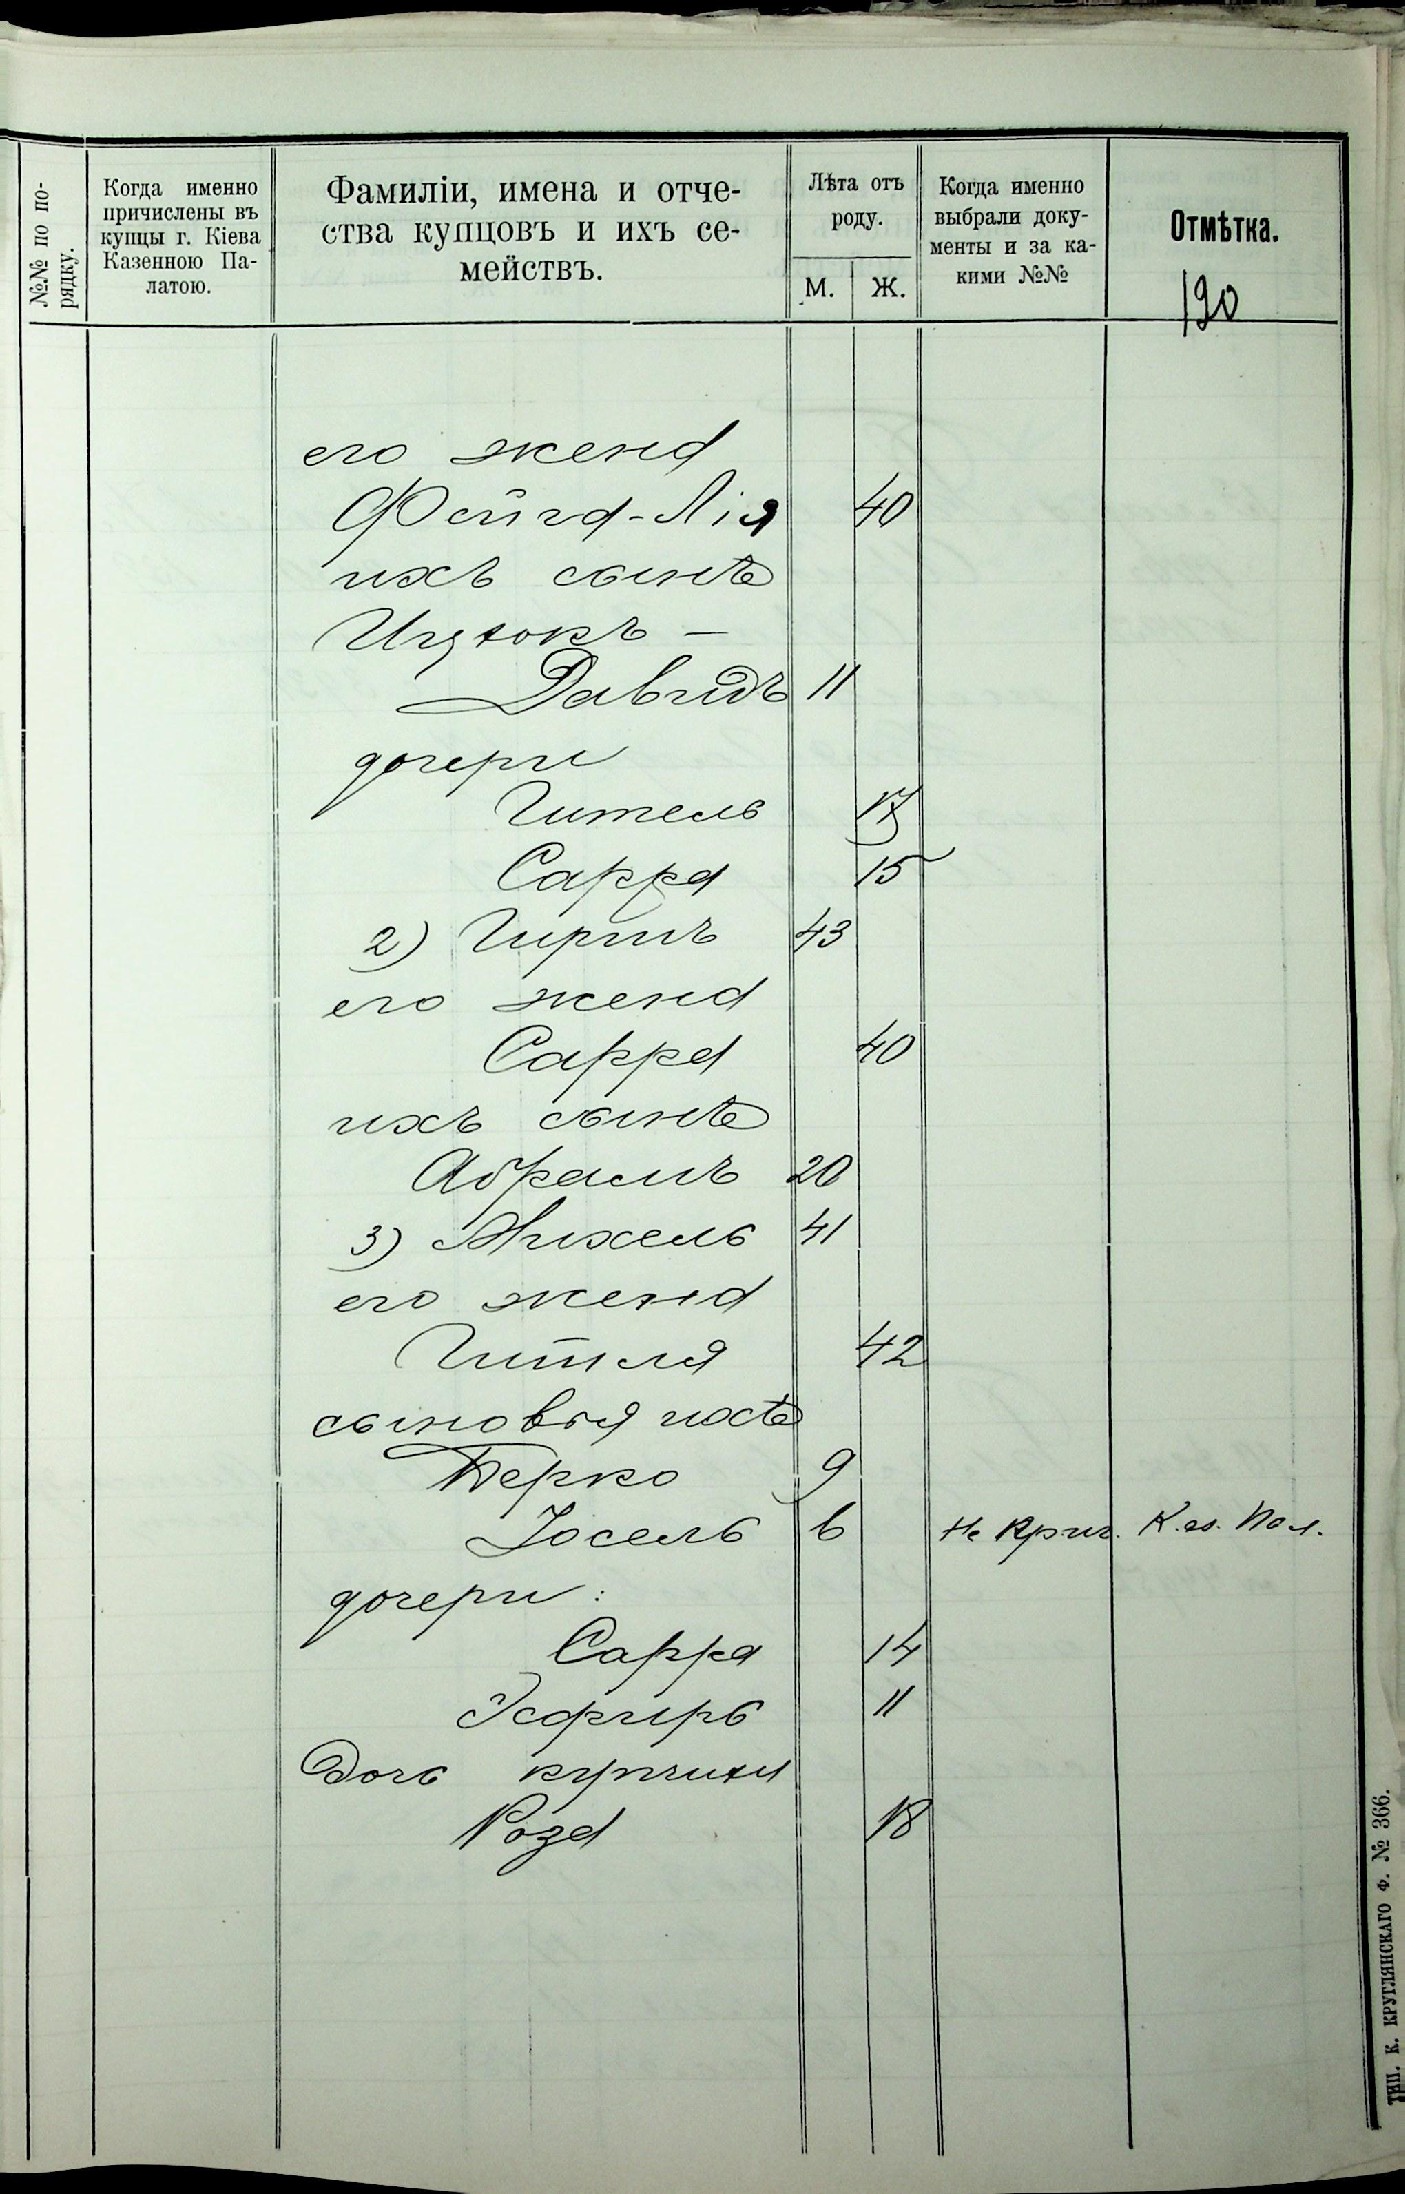 №№ по по-
рядку.
Когда именно
причислены въ
купцы г. Кіева
Казенною Па-
латою.
Фамиліи, имена и отче-
ства купцовъ и ихъ се-
мействъ.
Лѣта отъ
роду.
М. Ж.
Когда именно
выбрали доку-
менты и за ка-
кими №№
Отмѣтка.
190
его жена
Фейга-Лія 40
ихъ сынъ
Ицхокъ -
Давидъ 11
дочери
Гитель 17
Сарра 15
2) Гиршъ 43
его жена
Сарра 40
ихъ сынъ
Абрамъ 20
3) Михель 41
его жена
Гитля 42
сыновья ихъ
Берко 9
Іосель 6 Не прич. Каз. Пал.
дочери:
Сарра 14
Эсфирь 11
Дочь купчихи
Роза 18
ТИП. К. КРУГЛЯНСКАГО Ф. № 366.